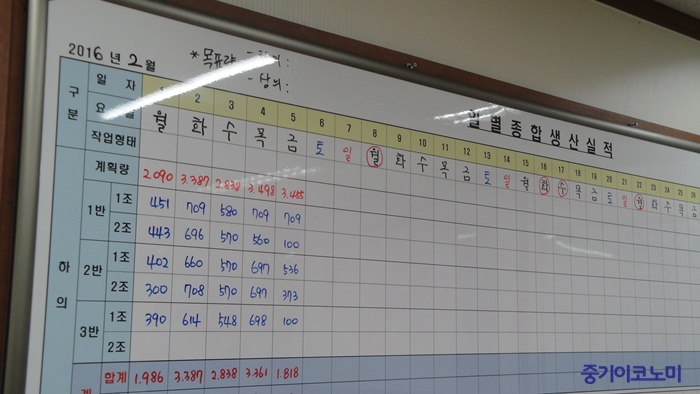 2016 년 2 월
*목표량 - 하의:
- 상의:
일별종합생산실적
구분 일 자 1 2 3 4 5 6 7 8 9 10 11 12 13 14 15 16 17 18 19 20 21 22 23 24 25 26
요 일 월 화 수 목 금 토 일 월 화 수 목 금 토 일 월 화 수 목 금 토 일 월 화 수 목 금
작업형태
하의 계획량 2.090 3.387 2.838 3.498 3.455
1반 1조 451 709 580 709 709
2조 443 696 570 560 100
2반 1조 402 660 570 697 536
2조 300 708 570 697 373
3반 1조 390 614 548 698 100
2조
계 합계 1.986 3.387 2.838 3.361 1.818
중기이코노미